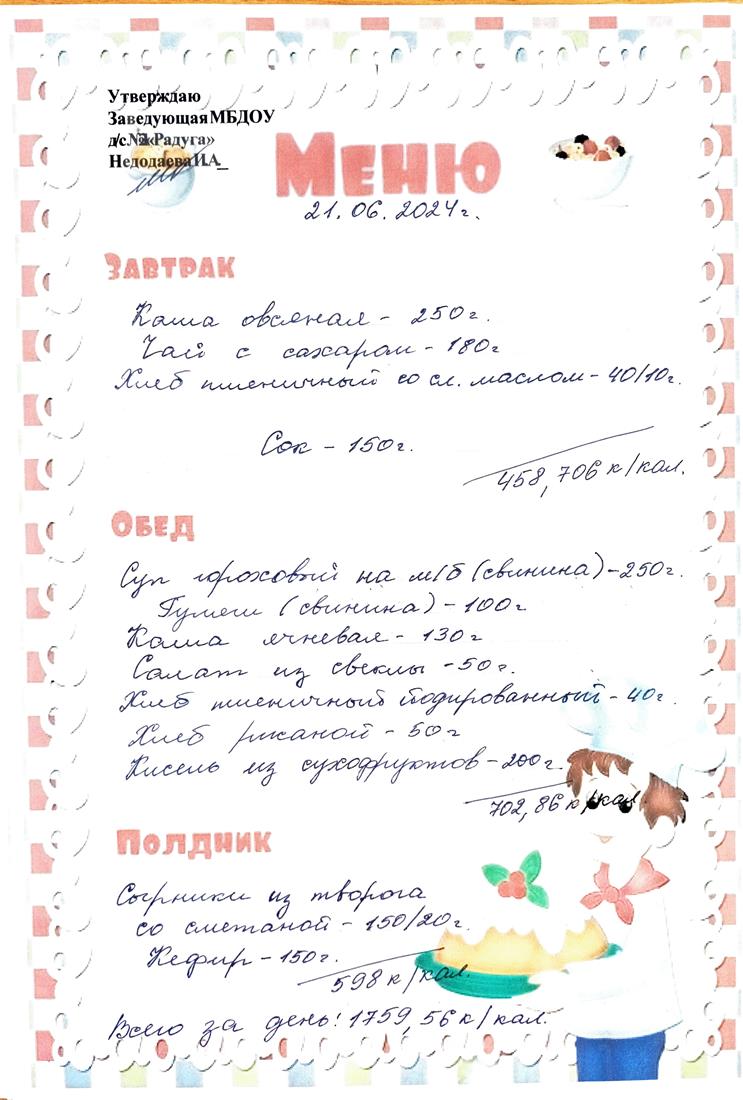 Утверждаю
Заведующая МБДОУ
д/с «Радуга»
Недодаева И.А_
Меню
21. 06. 2024г.
Завтрак
Каша овсяная - 250г.
Чай с сахаром - 180г
Хлеб пшеничный со сл. маслом - 40/10г.
Сок - 150г.
458,706 к/кал.
Обед
Суп гороховый на м/б (свинина) - 250г.
Гуляш (свинина) - 100г
Каша ячневая - 130г
Салат из свеклы - 50г.
Хлеб пшеничный йодированный - 40г.
Хлеб ржаной - 50г
Кисель из сухофруктов - 200г.
702,86 к/кал.
Полдник
Сырники из творога
со сметаной - 150/20г.
Кефир - 150г.
598 к/кал.
Всего за день: 1759,56 к/кал.